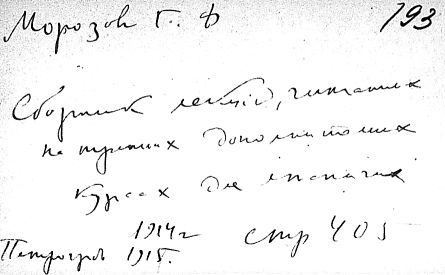 Морозов Г. Ф 193
Сборник лекций, читанных
на третьих дополнительных
курсах для лесничих
1914 г стр 405
Петроград 1915.